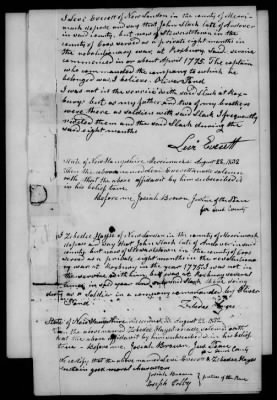 I Levi Everett of New London in the county of Merri-
mack depose and say that John Slack late of Andover
in said county, but now of Stewartstown in the
county of Coos served as a private eight months in
the revolutionary war at Roxbury said service
commenced in or about April 1775. The captain
who commanded the company to which he
belonged was I believe
I was not in the service with said Slack at Rox-
bury; but as my father and two of my brothers
were there as soldiers with said Slack I frequently
visited them and the said Slack during the
said eight months
Levi Everett
State of New Hampshire Merrimack ss August 22, 1832
Then the above named Levi Everett made solemn
oath that the above affidavit by him subscribed is
in his belief true
Before me, Josiah Brown, Justice of the Peace
for said County
I Zebedee Hayes of New London in the county of Merrimack
depose and say that John Slack late of Andover in said
county but now of Stewartstown in the county of Coos
served as a private eight months in the revolutionary
war at Roxbury in the year 1775. I was not in
the service with him but
times in said year and
duty as a soldier in a company commanded by
Zebedee Hayes
State of New Hampshire, Merrimack, ss August 22, 1832
Then the above named Zebedee Hayes made solemn oath
that the above affidavit by him subscribed is in his belief
true - Before me Josiah Brown, Just Peace said County
We certify that the above named Levi Everett & Zebedee Hayes
sustain good moral characters
Josiah Brown
Joseph Colby
Justices of the Peace